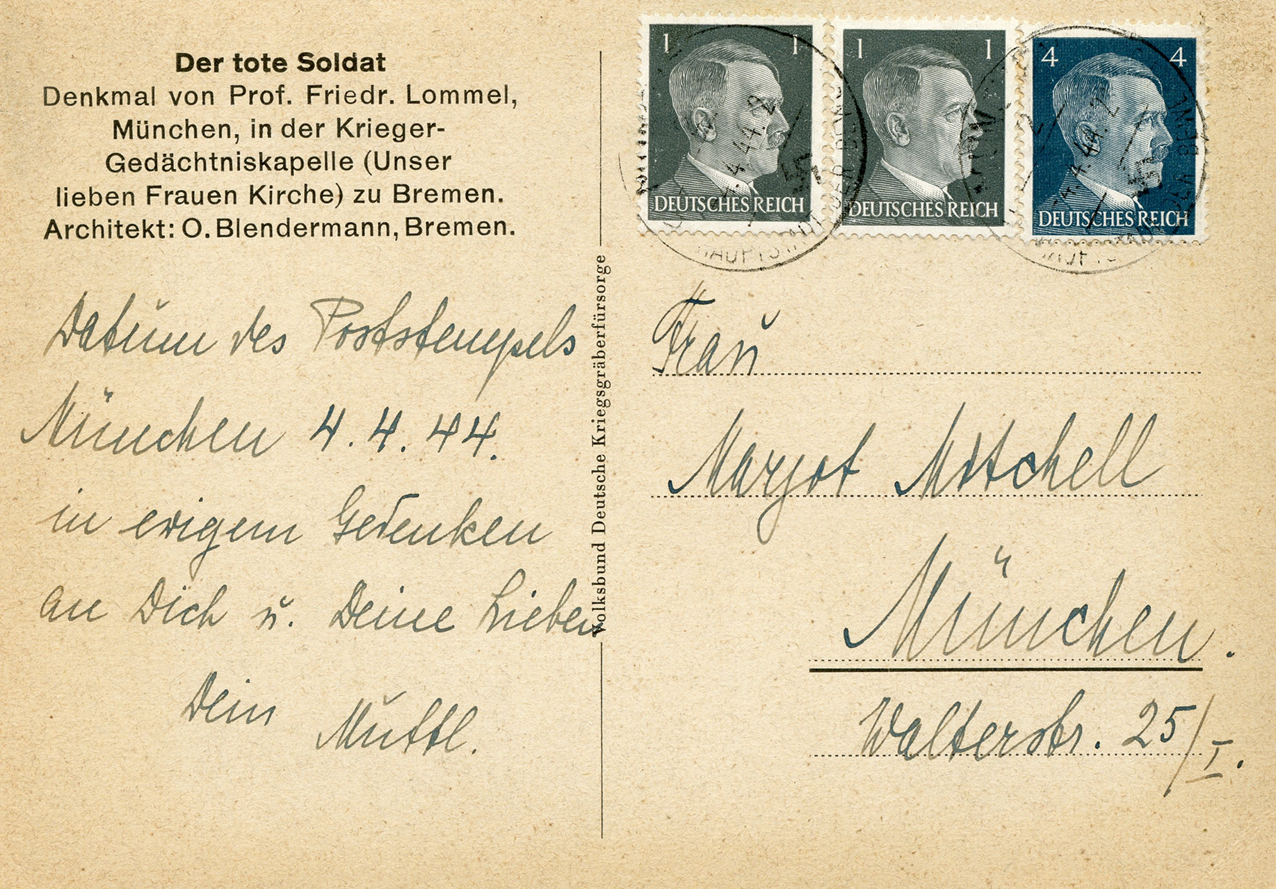 Der tote Soldat
Denkmal von Prof. Friedr. Lommel,
München, in der Krieger-
Gedächtniskapelle (Unser
lieben Frauen Kirche) zu Bremen.
Architekt: O. Blendermann, Bremen.
Datum des Poststempels
München 4.4.44.
in ewigem Gedenken
an Dich u. Deine Lieben
Dein Muttl.
Volksbund Deutsche Kriegsgräberfürsorge
1 1
DEUTSCHES REICH
1 1
DEUTSCHES REICH
4 4
DEUTSCHES REICH
4.4.44.2
HAUPTSTADT DER BEWE
4.4.44.2
Frau
Margot Mitchell
München.
Walterstr. 25/I.